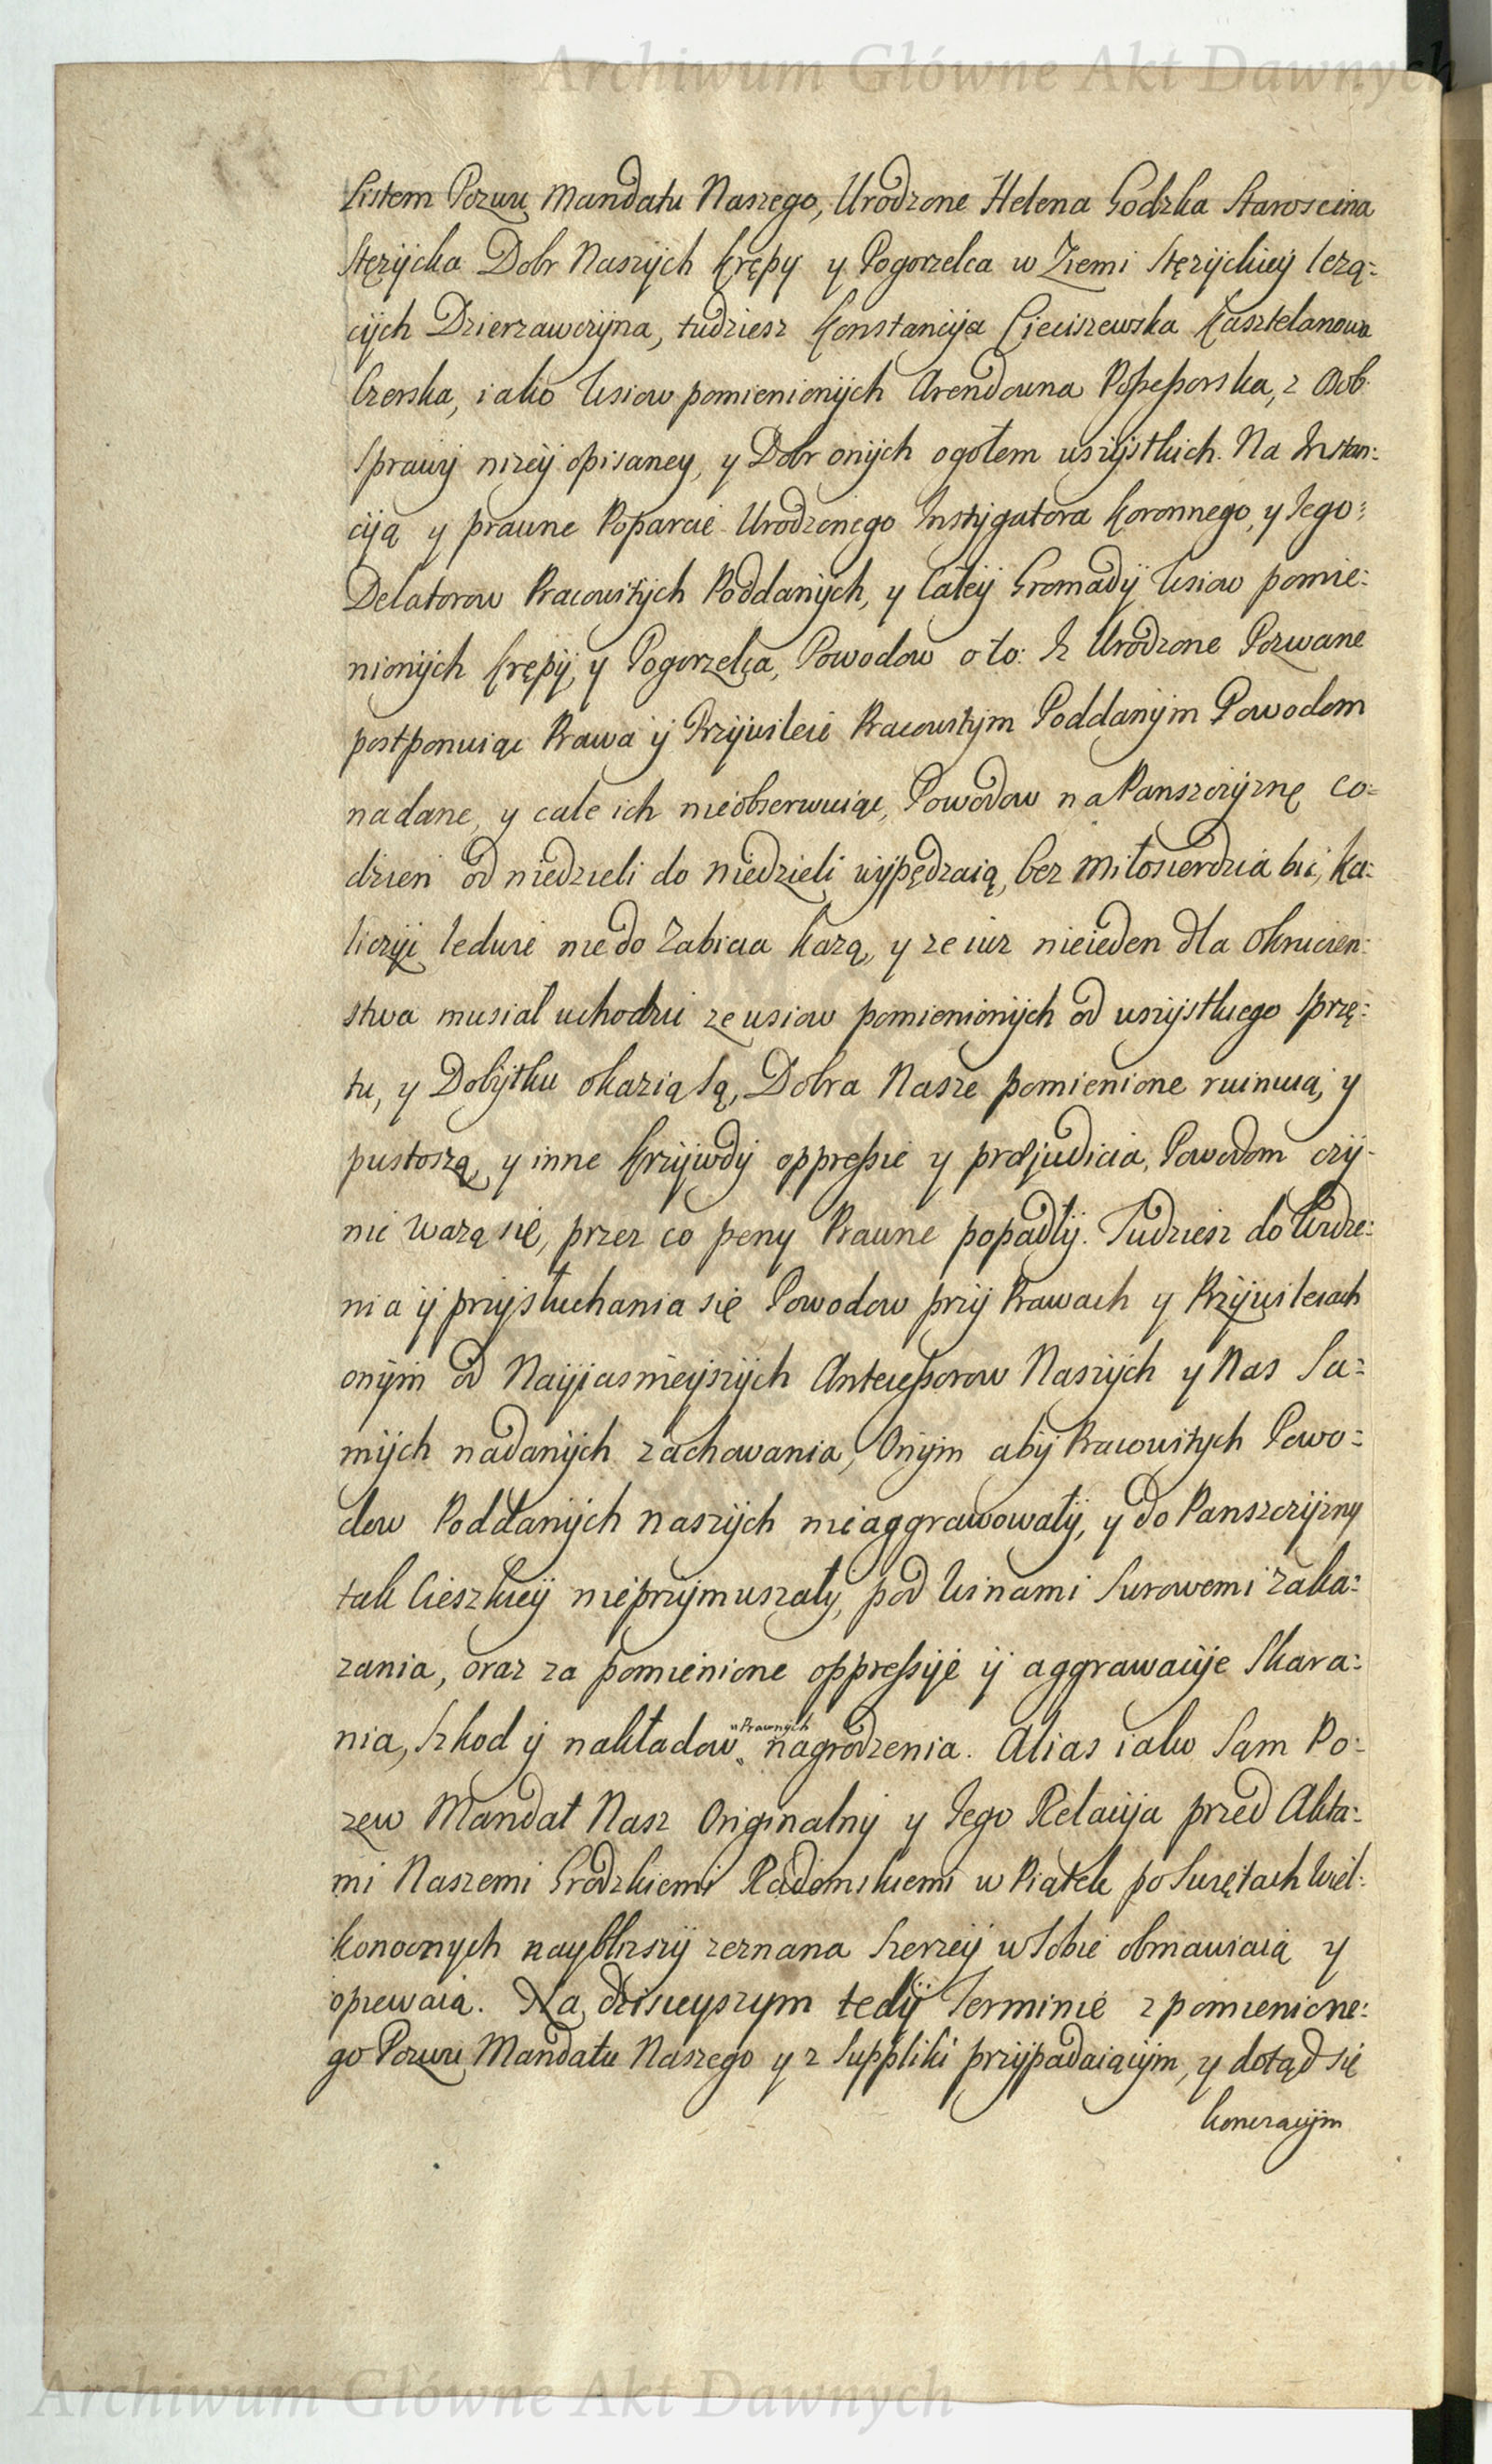 Archiwum Główne Akt Dawnych
Listem Pozwu Mandatu Naszego, Urodzone Helena Godzka Staroscina
Stęzÿcka Dobr Naszÿch Kręṗy y Pogorzelca w Ziemi Stęzÿckieÿ lezą:
cÿch Dzierzawczÿna, tudziesz Konstancÿa Cieciszewska Kasztelanowa
Czerska, iako Wsiow pomienionÿch Arendowna Possessorska, z Osob
Sprawÿ nizeÿ opisaney, y Dobr onÿch ogołem wszÿstkich. Na Instan:
cÿą y prawne Poparcie Urodzonego Instÿgatora Koronnego, y Jego:
Delatorow Pracowitÿch Poddanÿch, y Całeÿ Gromadÿ Wsiow pomie:
nionÿch Krępÿ, y Pogorzelca, Powodow o to: Iz Urodzone Pozwane
postponuiąc Prawa ÿ Przÿwileie Pracowitÿm Poddanÿm Powodom
nadane, y cale ich nieobserwuiąc, Powodow na Panszczÿznę co=
dzien od niedzieli do niedzieli wÿpędzaią, bez miłosierdzia bić, ka:
liczÿć ledwie nie do Zabicia kazą, y ze iuz nieieden dla okrucien:
stwa musiał uchodzic ze wsiow pomienionÿch od wszÿstkiego Sprzę:
tu, y Dobÿtku okazią Są, Dobra Nasze pomienione ruinuią, y
pustoszą, y inne Krzÿwdÿ oppressie y præjudicia, Powodom czÿ-
nic wazą się, przez co peny Prawne popadłÿ. Tudziesz do Widze:
nia ÿ przÿsłuchania się Powodow przÿ Prawach y Przÿwileiach
onÿm od Naÿiasnieÿszÿch Antecessorow Naszÿch y Nas Sa=
mÿch nadanÿch zachowania, Onÿm abÿ Pracowitych Powo=
dow Poddanÿch naszÿch nie aggrawowałÿ, y do Panszczÿzny
tak Cieszkieÿ nieprzÿmuszałÿ, pod Winami Surowemi zaka:
zania, oraz za pomienione oppressÿe ÿ aggrawacÿe Skara:
nia, Szkod ÿ nakładow nagrodzenia. Alias iako Sąm Po:
w Prawnych
zew Mandat Nasz Originalnÿ y Jego Relacÿa przed Akta:
mi Naszemi Grodzkiemi Radomskiemi w Piątek po Swiętach Wiel:
konocnych nayblizszÿ zeznana Szerzeÿ w Sobie obmawiaią y
opiewaią. Na dzisieyszym tedÿ Terminie z pomienione:
go Pozwu Mandatu Naszego y z Suppliki przÿpadaiącÿm, y dotąd się
konczącÿm
Archiwum Główne Akt Dawnych